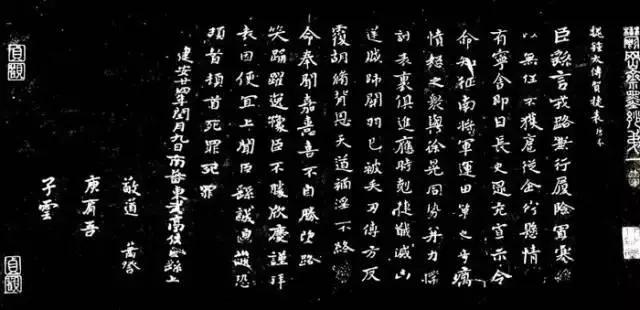 魏鍾太傅賀捷表
臣繇言戎路兼行履險冒寒臣
以無任不獲扈從企佇懸情
有寧舍即日長史逯充宣示令
命知征南將軍運田單之奇厲
憤怒之衆與徐晃同勢并力撲
討表裏俱進應時剋捷馘滅凶
逆賊帥關羽已被矢刃傅方反
覆胡脩背恩天道禍淫不終
命奉聞嘉憙喜不自勝望路
笑踊躍逸豫臣不勝欣慶謹拜
表因便宜上聞臣繇誠惶誠恐
頓首頓首死罪死罪
建安廿四年閏月九日南蕃東武亭侯臣繇上
敬道
庾肩吾
子雲
貞觀
貞觀